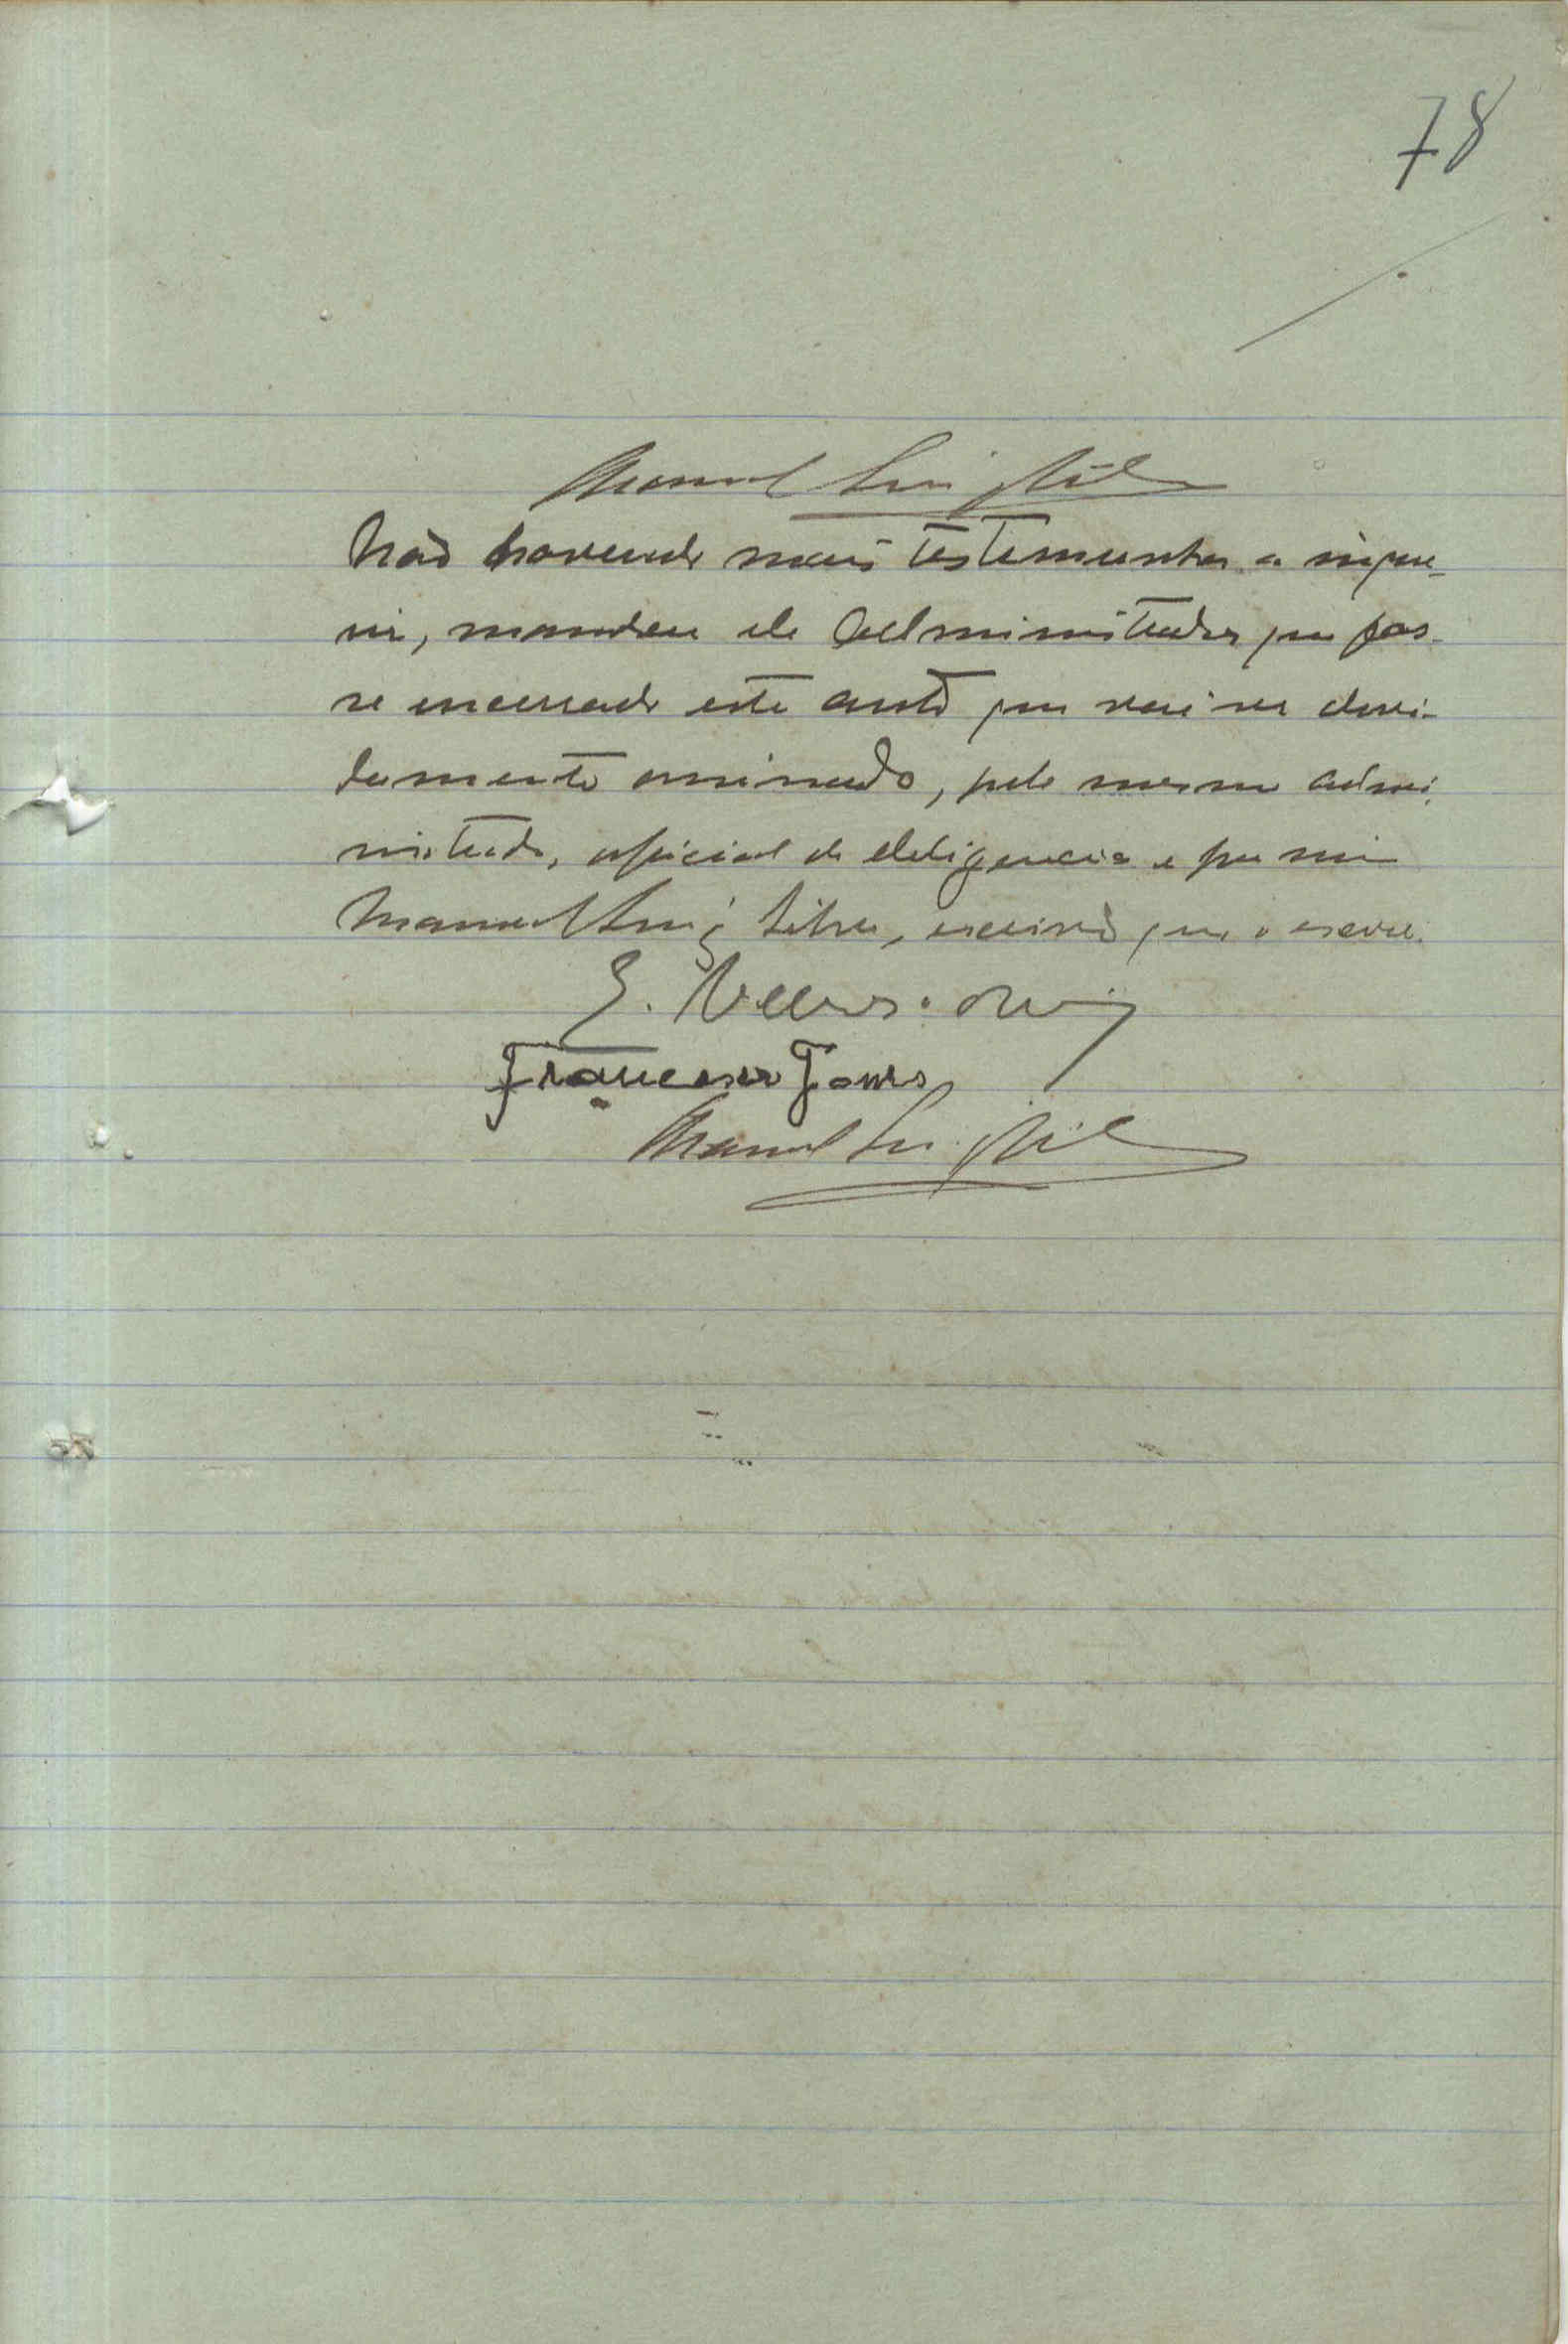 78
Manuel Luiz
Não havendo mais testemunhas a inqui-
rir, mandou ele Administrador que fos-
se encerrado este auto que vai ser devi-
damente assinado, pelo mesmo admi-
nistrador, oficial de deligencias e por mim
Manuel Luiz, escrivão que o escrevi.
E.
Francisco Gomes
Manuel Luiz